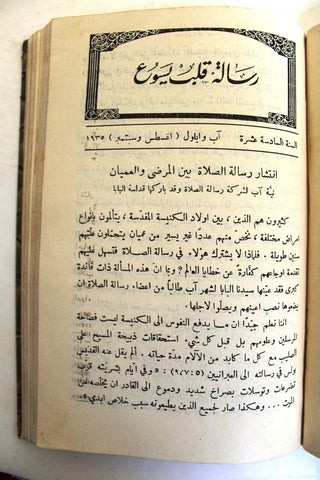 رسالة قلب يسوع
السنة السادسة عشرة   آب وايلول ( اغسطس وسبتمبر ) ١٩٣٥
انتشار رسالة الصلاة بين المرضى والعميان
نيّة آب لشركة رسالة الصلاة وقد باركها قداسة البابا
كثيرون هم الذين ، بين اولاد الكنيسة المقدسة ، يتألمون بانواع
امراض مختلفة ، نخصّ منهم عددًا غير يسير من عميان يتحملون علتهم
سنين طويلة . فلماذا لا يشترك هؤلاء في رسالة الصلاة فتسهل عليهم
تقدمة اوجاعهم كفّارة عن خطايا العالم ? وبما انّ هذه المسألة ذات فائدة
كبرى فقد عيّنها سيدنا البابا لشهر آب طالبًا من اعضاء رسالة الصلاة ان
يضعوها نصب اعينهم ويصلّوا لاجلها .
اننا نعلم جيدًا ان ما يدفع النفوس الى الكنيسة ليست فصاحة
المرسلين وعلومهم بل قبل كل شيء ، استحقاقات ذبيحة المسيح على
الصليب مع كل ما كابد من الآلام مدة حياته . ألم يقل عنه القديس
بولس في رسالته الى العبرانيين (٥:٧و٩) : «وفي ايام بشريّته قرب
تضرعات وتوسلات بصراخ شديد ودموع الى القادر ان يخلصه من
الموت ... وهكذا صار لجميع الذين يطيعونه سبب خلاص ابدي» .